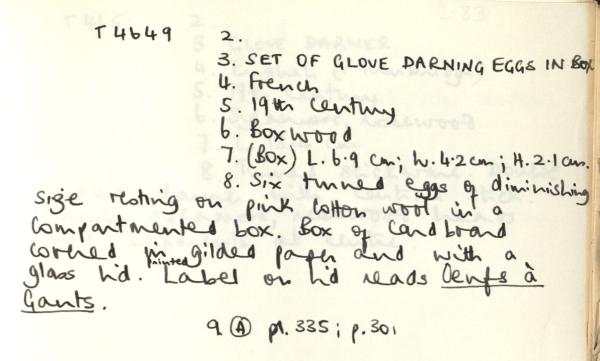 T4649 2.
3. SET OF GLOVE DARNING EGGS IN BOX
4. French
5. 19th Century
6. Boxwood
7. (Box) L. 6.9 cm; W. 4.2 cm; H. 2.1 cm.
8. Six turned eggs of diminishing
size resting on pink cotton wool in a
compartmented box. Box of cardboard
covered in gilded paper and with a
printed
glass lid. Label on lid reads Oeufs à
Gants.
9. (A) pl. 335; p. 301